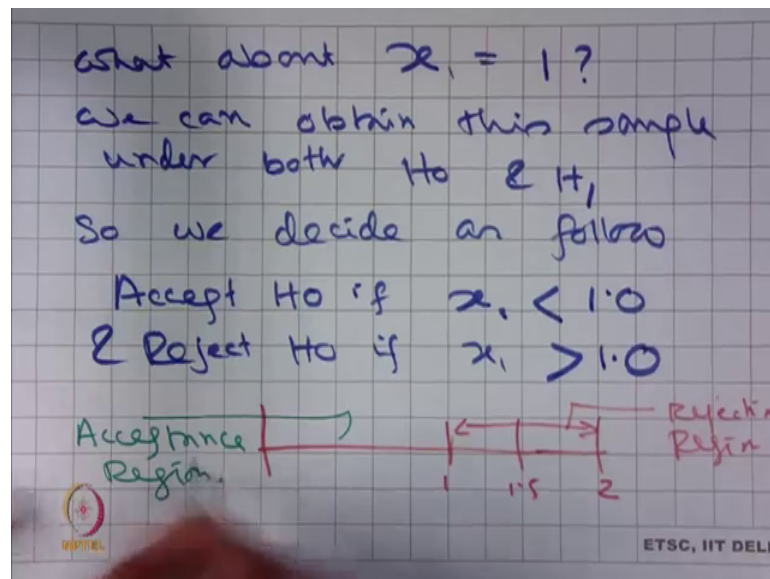 What about x₁ = 1?
We can obtain this sample
under both H0 & H1
So we decide as follows
Accept H0 if x₁ < 1.0
& Reject H0 if x₁ > 1.0
Acceptance Region.
1 1.5 2
Rejectin Regin
NPTEL
ETSC, IIT DELH